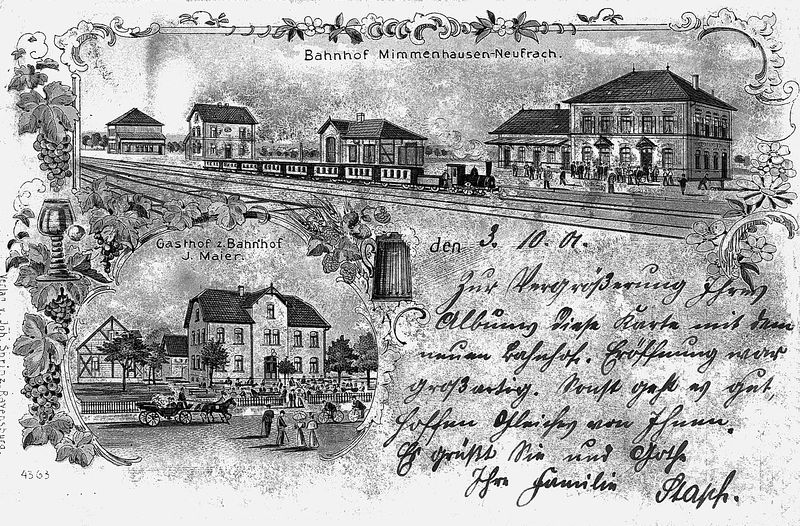 Bahnhof Mimmenhausen-Neufrach.
Gasthof z. Bahnhof
J. Maier.
den 3. 10. 01.
Zur Vergrößerung Ihres
Albums diese Karte mit dem
neuen Bahnhof. Eröffnung war
großartig. Sonst geht es gut,
hoffen Gleiches von Ihnen.
Es grüßt Sie und
Ihre Familie
4363